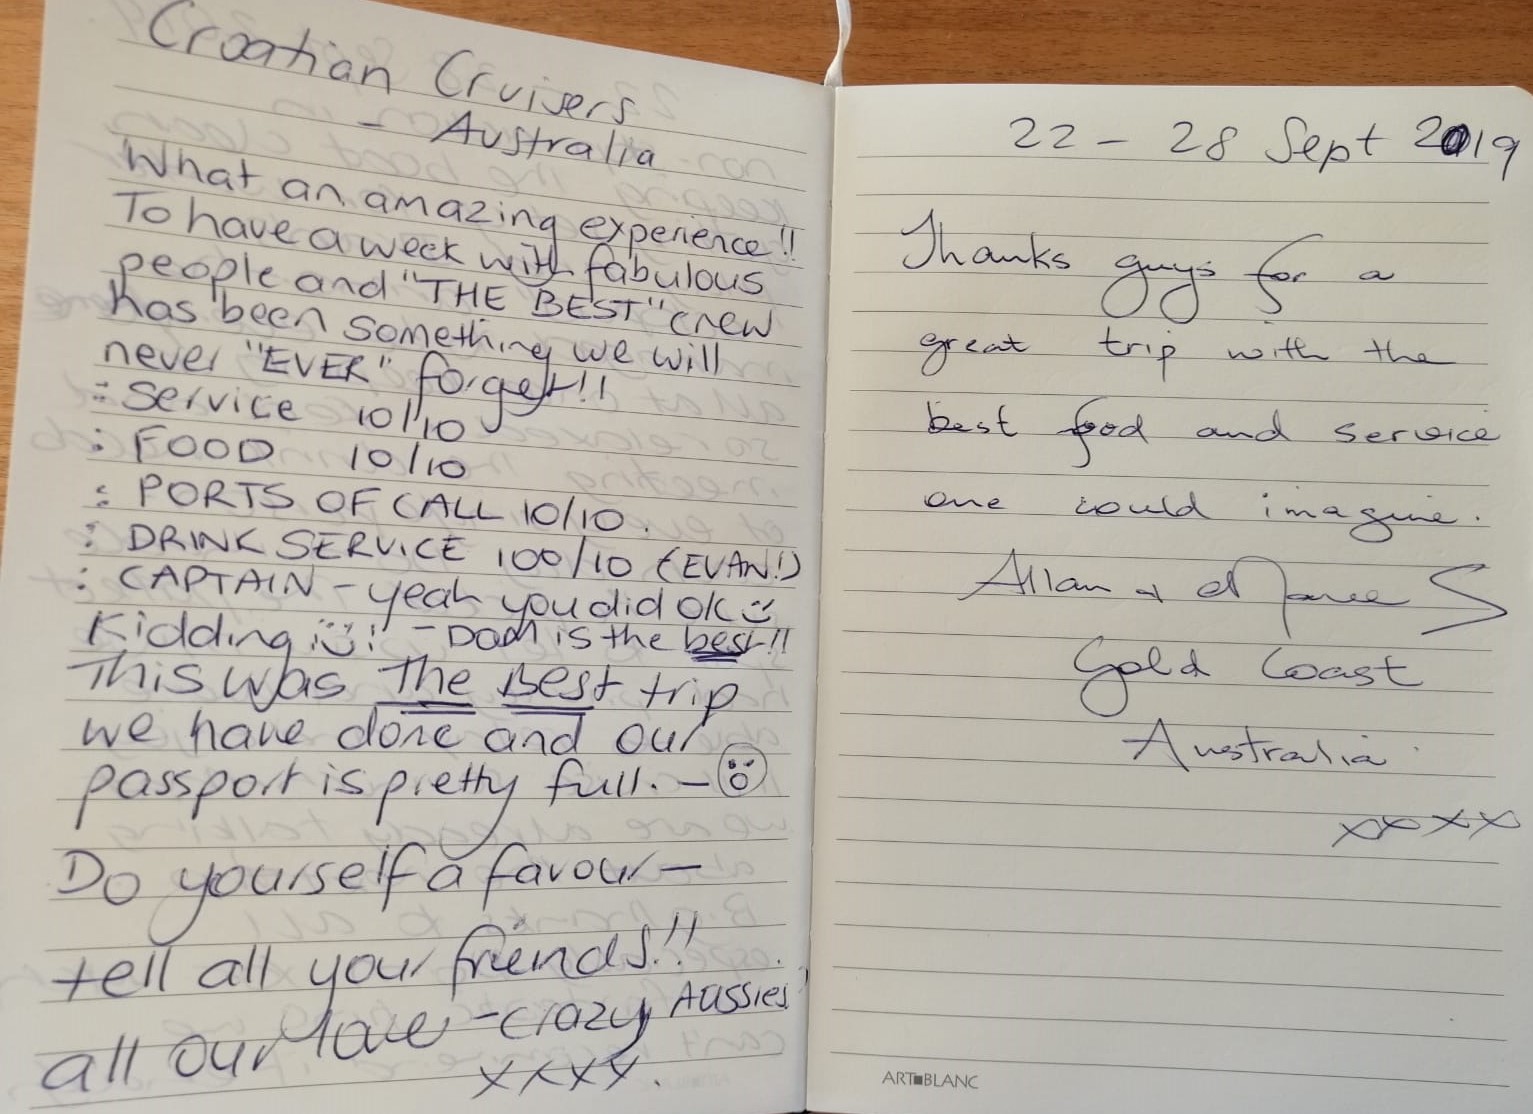 Croatian Cruisers
- Australia
What an amazing experience!!
To have a week with fabulous
people and "THE BEST" crew
has been something we will
never "EVER" forget!!
: Service 10/10
: FOOD 10/10
: PORTS OF CALL 10/10.
: DRINK SERVICE 100/10 (EVAN!)
: CAPTAIN - yeah you did OK
Kidding ! - is the best!!
This was The Best trip
we have done and our
passport is pretty full. -
Do yourself a favour -
tell all your friends!!
all our love - crazy Aussies!
xxxx.
22 - 28 Sept 2019
Thanks guys for a
great trip with the
best food and service
one could imagine.
Allan + S
Gold Coast
Australia
xxxx
ART■BLANC